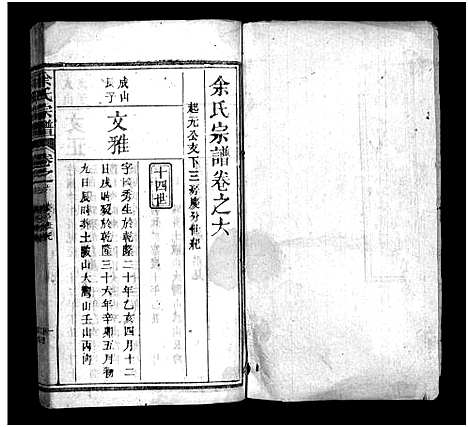 余氏宗譜卷之六
起元公支下三房慶分世紀
十四世
成山
長子
文雅
字秀生於乾隆二十年乙亥四月十二
日戌時歿於乾隆三十六年辛卯五月初
九日辰時葬土山大灣山壬山丙向
余氏宗譜
卷之六